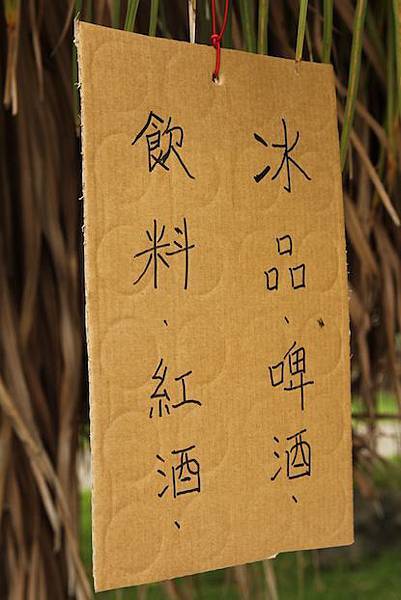 冰品、啤酒、
飲料、紅酒、